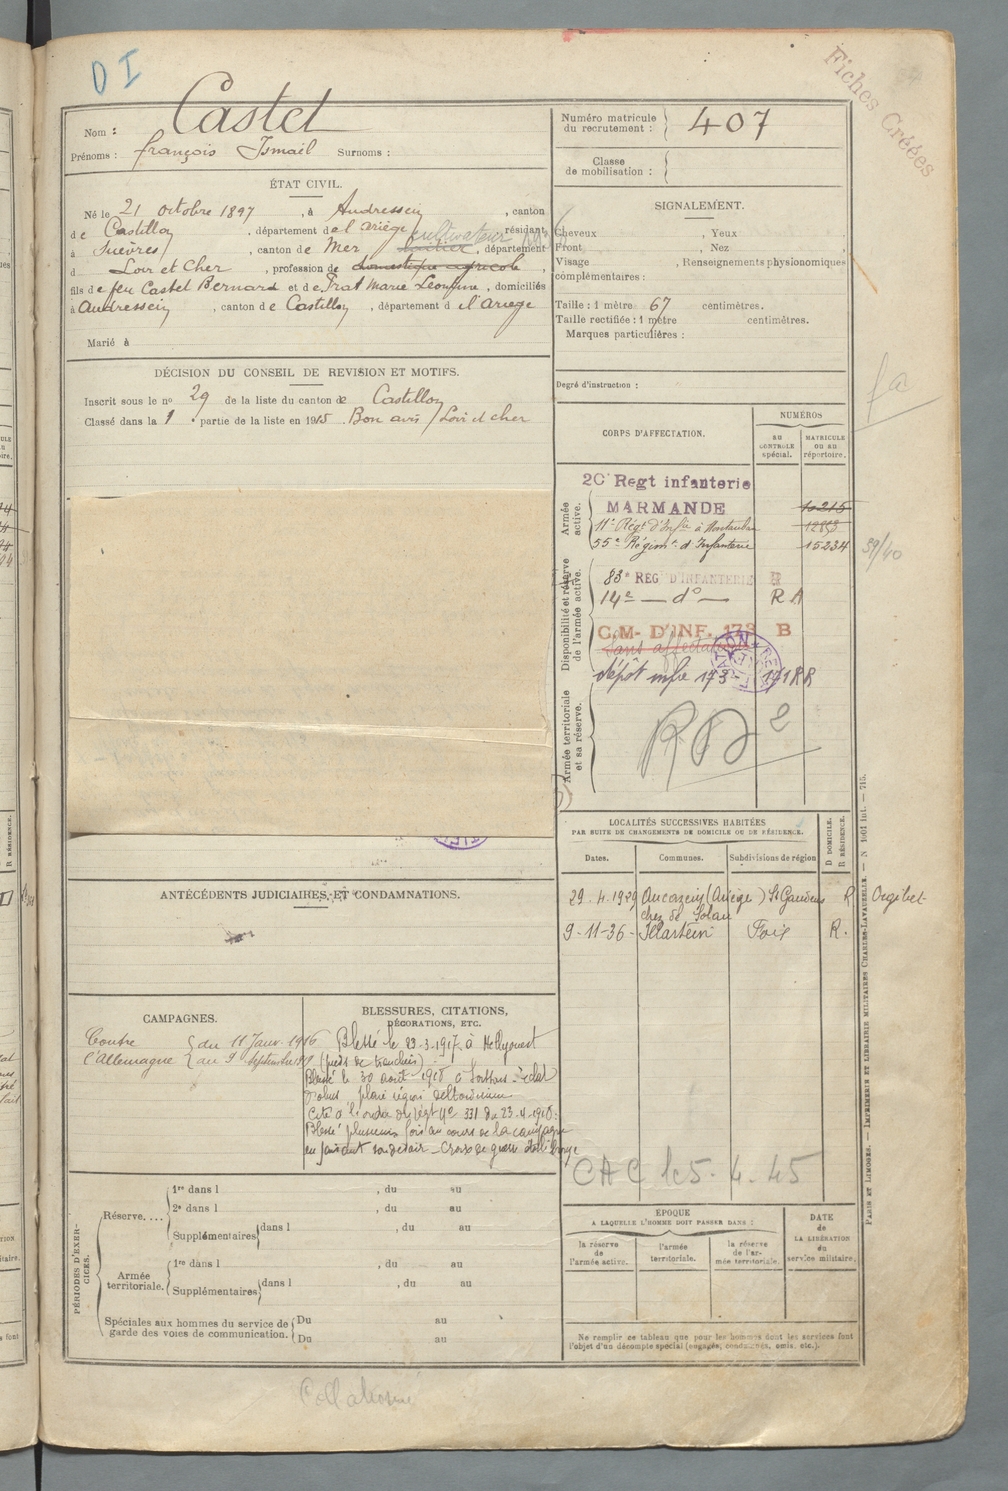 D I
Fiches Créées
Nom : Castel
Prénoms : françois Ismaël Surnoms :
Numéro matricule
du recrutement : 407
Classe
de mobilisation :
ÉTAT CIVIL.
Né le 21 octobre 1897, à Audressein, canton
de Castillon, département de l'ariège, résidant
cultivateur
à Suèvres, canton de Mer, département
d Loir et Cher, profession de domestique agricole,
fils de feu Castel Bernard et de Prat Marie Léontine, domiciliés
à Audressein, canton de Castillon, département d el'ariege
Marié à
SIGNALEMENT.
Cheveux , Yeux
Front , Nez
Visage , Renseignements physionomiques
complémentaires :
Taille : 1 mètre 67 centimètres.
Taille rectifiée : 1 mètre centimètres.
Marques particulières :
Degré d'instruction :
DÉCISION DU CONSEIL DE REVISION ET MOTIFS.
Inscrit sous le no 29 de la liste du canton de Castillon
Classé dans la 1 partie de la liste en 1915. Bon avis / Loir et cher
CORPS D'AFFECTATION.
NUMÉROS
AU CONTROLE spécial.
MATRICULE OU AU répertoire.
Armée active.
20 Regt infanterie
MARMANDE 10215
11e Régt d'Infie à Montauban
55e Régimt d'Infanterie 15234
39/40
Disponibilité et réserve de l'armée active.
83e REG D'INFANTERIE R
14e — do — R A
C.M- D'INF. 173 B
Sans affectation
dépôt infie 173
Armée territoriale et sa réserve.
LOCALITÉS SUCCESSIVES HABITÉES
PAR SUITE DE CHANGEMENTS DE DOMICILE OU DE RÉSIDENCE.
Dates. Communes. Subdivisions de région
D DOMICILE. R RÉSIDENCE.
29.4.1929 Aucazein (Ariège) St Gaudens R Orgibet
chez de Solan
9-11-36- Illartein Foix R.
CAC le 5.4.45
ANTÉCÉDENTS JUDICIAIRES ET CONDAMNATIONS.
CAMPAGNES.
Contre l'Allemagne
du 11 Janv. 1916
au 9 Septembre 19
BLESSURES, CITATIONS,
DÉCORATIONS, ETC.
Blessé le 23-3-1917 à
(pieds de tranchées)
Blessé le 30 août 1918 à Soissons. éclat
d'obus, plaie région deltoidienne
Cité à l'ordre du régt No 331 du 23.4.1918:
Blessé plusieurs fois au cours de la campagne
en faisant son devoir - Croix de guerre étoile bronze
PÉRIODES D'EXERCICES.
Réserve....
1re dans l , du au
2e dans l , du au
Supplémentaires dans l , du au
Armée territoriale.
1re dans l , du au
Supplémentaires dans l , du au
Spéciales aux hommes du service de
garde des voies de communication.
Du au
Du au
ÉPOQUE
A LAQUELLE L'HOMME DOIT PASSER DANS :
la réserve de l'armée active.
l'armée territoriale.
la réserve de l'armée territoriale.
DATE
de
LA LIBÉRATION
du
service militaire.
Ne remplir ce tableau que pour les hommes dont les services font
l'objet d'un décompte spécial (engagés, condamnés, omis, etc.).
PARIS ET LIMOGES. — IMPRIMERIE ET LIBRAIRIE MILITAIRES CHARLES-LAVAUZELLE.
Collationné